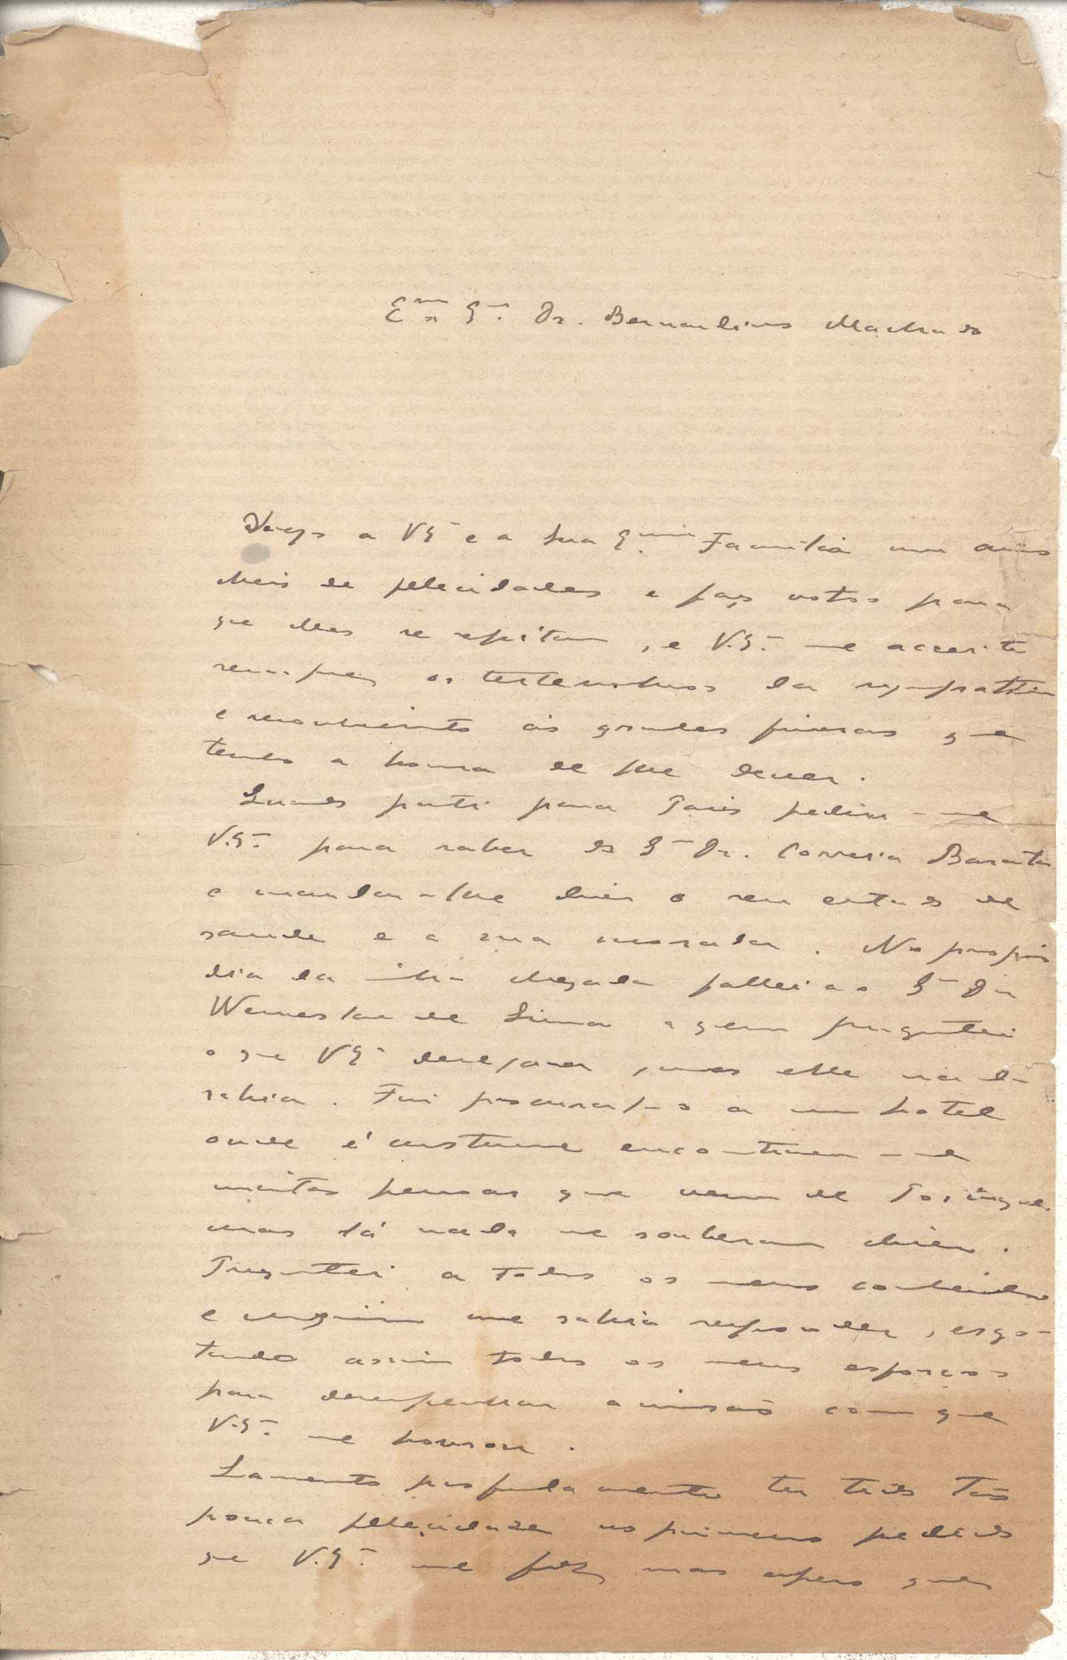 Exmo Snr. Dr. Bernardino Machado
Desejo a V Exª e a sua Exma Familia um anno
cheio de felicidades e faço votos para
que elles se repitam, e V. Exª. me acceite
sempre os testemunhos da sympathia
e reconhecimento ás grandes finezas que
tenho a honra de lhe dever.
Quando parti para Paris pediu-me
V. Exª. para saber do Snr Dr. Correia Barata
e mandar-lhe dizer o seu estado de
saude e a sua morada. No proprio
dia da minha chegada fallei ao Snr Dr
Wenceslau de Lima a quem perguntei
o que V Exª desejava, mas elle nada
sabia. Fui procural-o a um hotel
onde é costume encontrarem-se
muitas pessoas que veem de
mas lá nada me souberam dizer.
Perguntei a todos os meus conhecidos
e ninguem me sabia responder, esgo-
tando assim todos os meus esforços
para desempenhar a missão com que
V. Exª. me honrou.
Lamento profundamente ter tido tão
pouca felicidade no primeiro pedido
que V. Exª. me fez, mas espero que